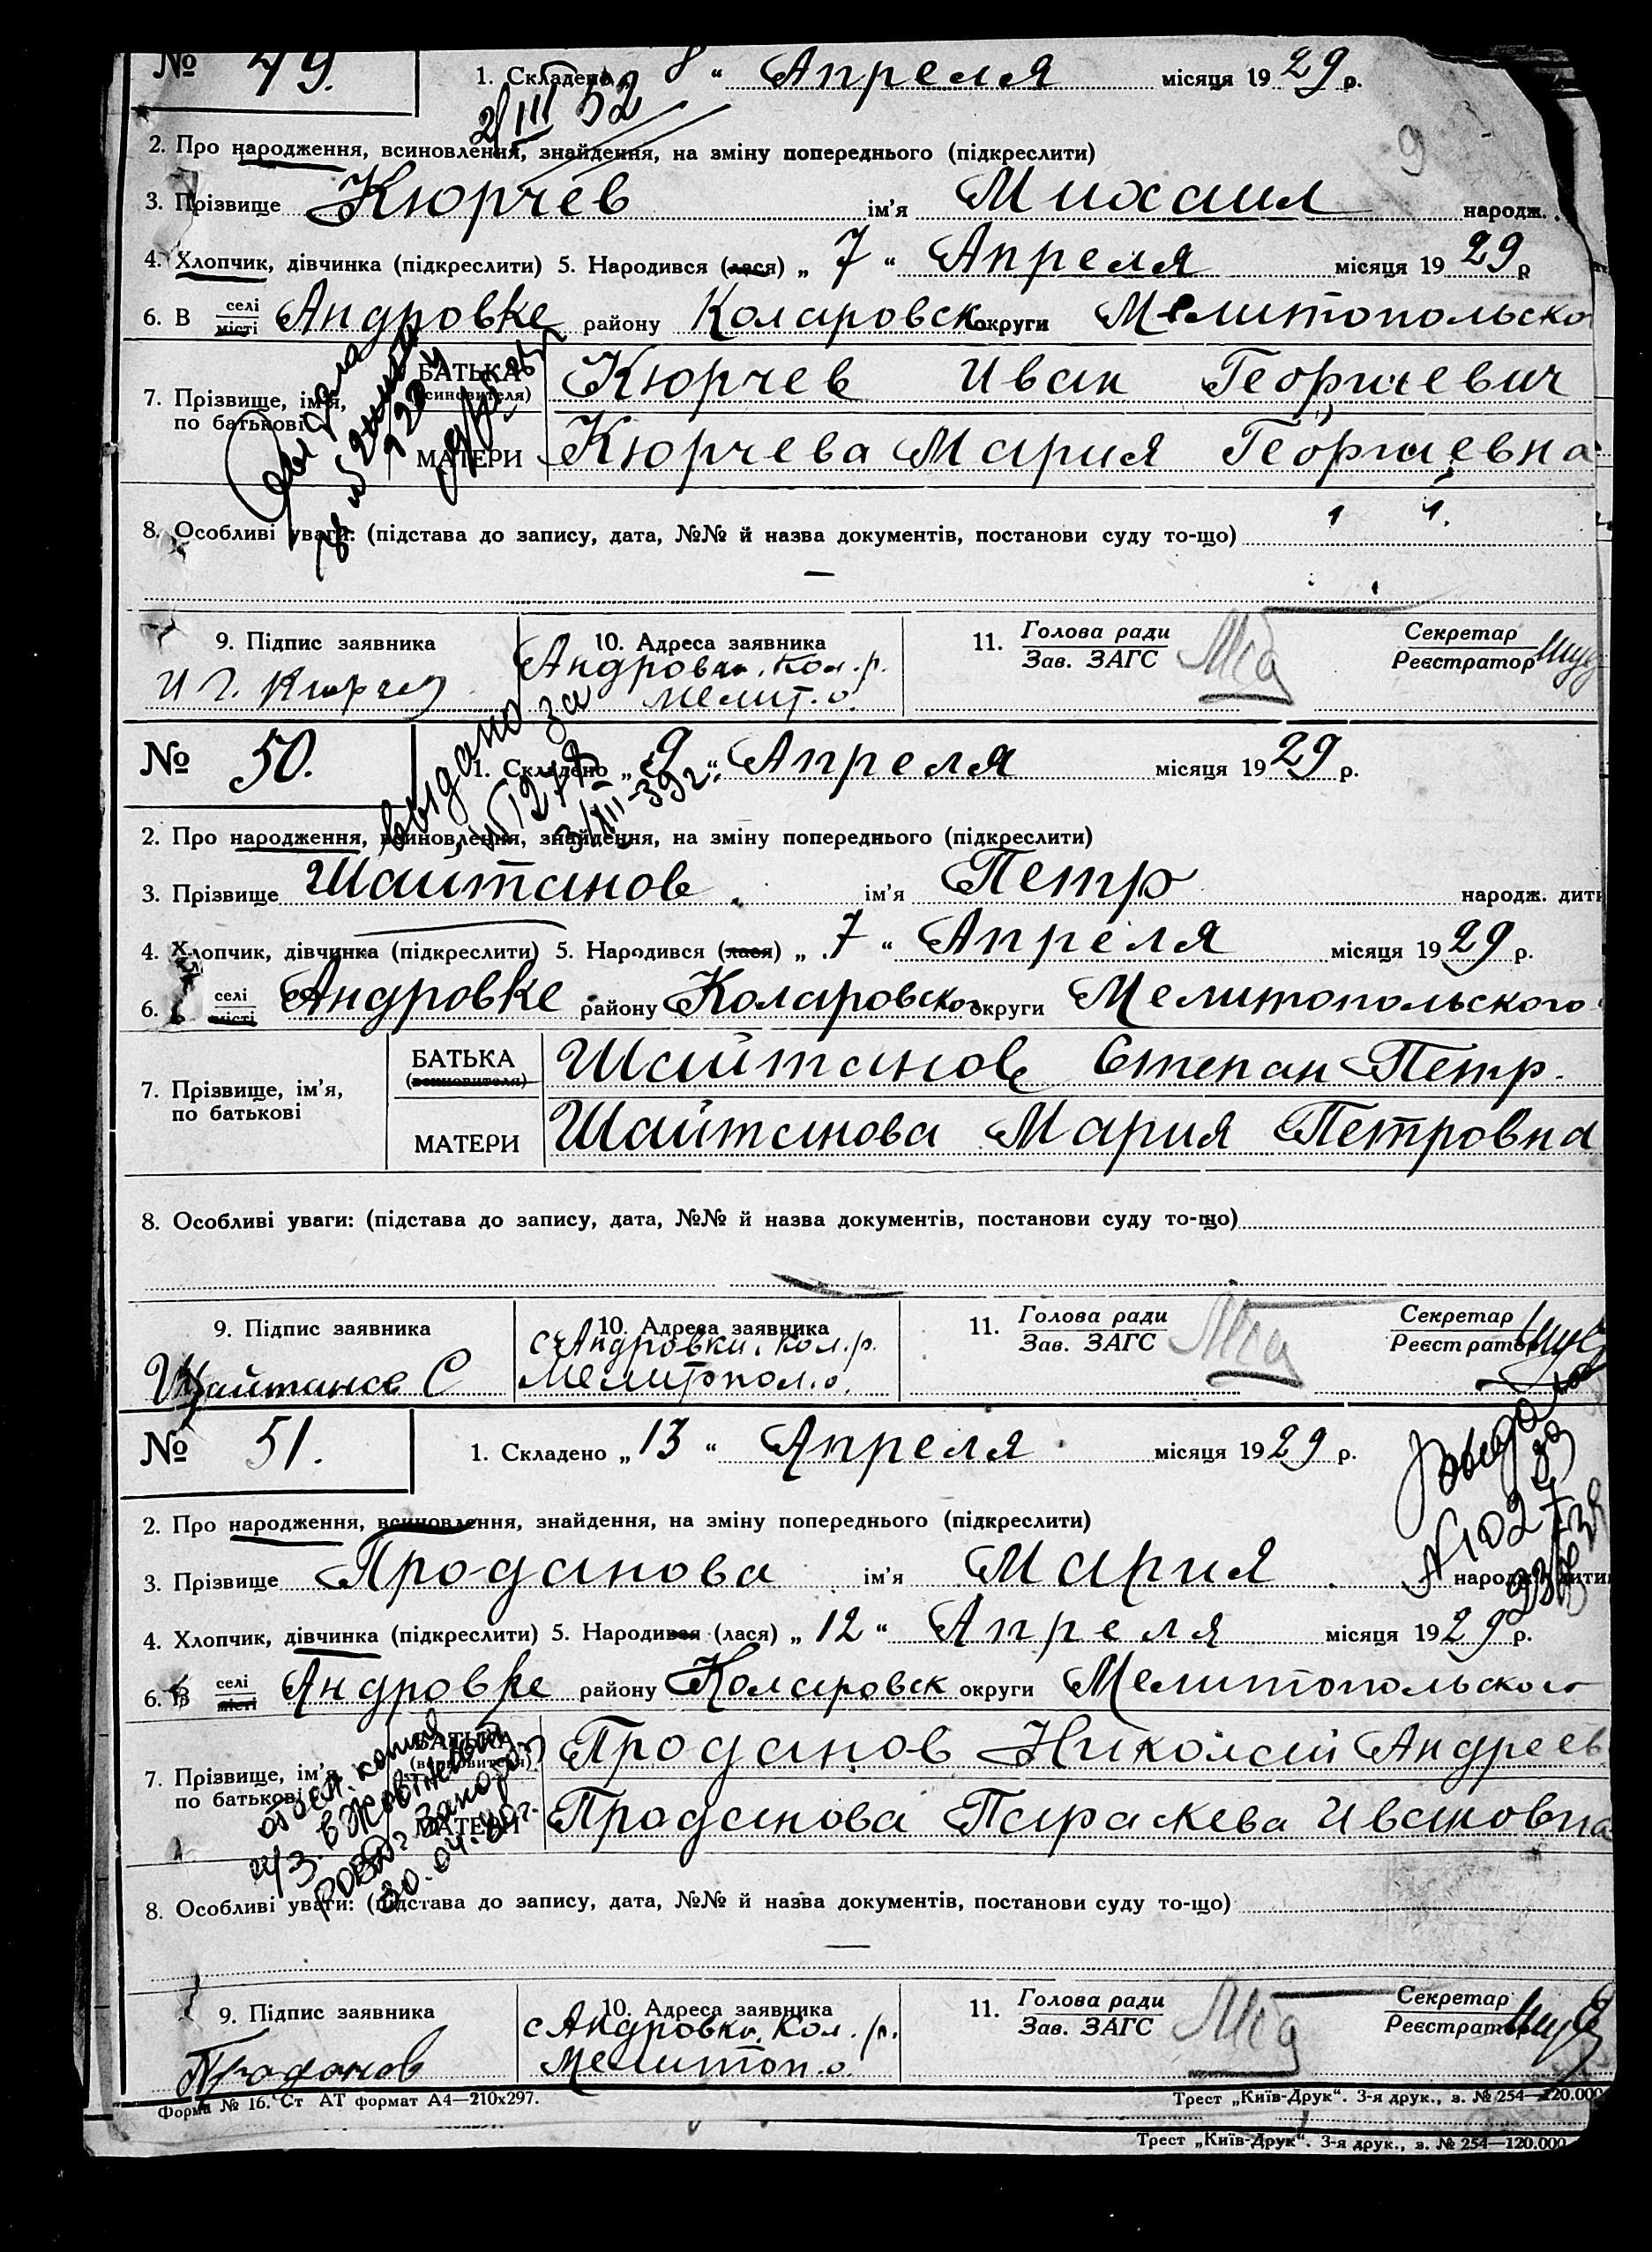 № 49. 1. Складено „ 8 “ Апреля місяця 1929 р.
2/III 52
2. Про народження, всиновлення, знайдення, на зміну попереднього (підкреслити)
3. Прізвище Кюрчев ім’я Михаил народж.
4. Хлопчик, дівчинка (підкреслити) 5. Народився (лася) „ 7 “ Апреля місяця 1929 р
6. В селі місті Андровке району Коларовск округи Мелитопольско
7. Прізвище, ім’я, по батькові
БАТЬКА (всиновителя) Кюрчев Иван Георгиевич
МАТЕРИ Кюрчева Мария Георгиевна
8. Особливі уваги: (підстава до запису, дата, №№ й назва документів, постанови суду то-що)
—
9. Підпис заявника 10. Адреса заявника 11. Голова ради Секретар
Зав. ЗАГС Реєстратор
И Г. Кюрчев Андровка. Кол. р.
Мелит. о.
№ 50. 1. Складено „ 9 “ Апреля місяця 1929 р.
выдано за
2. Про народження, всиновлення, знайдення, на зміну попереднього (підкреслити)
3. Прізвище Шайтанов ім’я Петр народж. дити
4. Хлопчик, дівчинка (підкреслити) 5. Народився (лася) „ 7 “ Апреля місяця 1929 р.
6. В селі місті Андровке району Коларовског округи Мелитопольского
7. Прізвище, ім’я, по батькові
БАТЬКА (всиновителя) Шайтанов Степан Петр.
МАТЕРИ Шайтанова Мария Петровна
8. Особливі уваги: (підстава до запису, дата, №№ й назва документів, постанови суду то-що)
9. Підпис заявника 10. Адреса заявника 11. Голова ради Секретар
Зав. ЗАГС Реєстратор
Шайтанов С с Андровки. Кол. р.
Мелитопол. о.
№ 51. 1. Складено „ 13 “ Апреля місяця 1929 р.
2. Про народження, всиновлення, знайдення, на зміну попереднього (підкреслити)
3. Прізвище Проданова ім’я Мария народж. дити
4. Хлопчик, дівчинка (підкреслити) 5. Народився (лася) „ 12 “ Апреля місяця 1929 р.
6. В селі місті Андровке району Коларовск округи Мелитопольского
7. Прізвище, ім’я, по батькові
БАТЬКА (всиновителя) Проданов Николай Андреев
МАТЕРИ Проданова Параскева Ивановна
8. Особливі уваги: (підстава до запису, дата, №№ й назва документів, постанови суду то-що)
—
9. Підпис заявника 10. Адреса заявника 11. Голова ради Секретар
Зав. ЗАГС Реєстратор
Проданов с Андровка. Кол. р.
Мелитоп. о.
Форма № 16. Ст АТ формат А4—210х297. Трест „Київ-Друк“. 3-я друк., з. № 254—120.000
Трест „Київ-Друк“. 3-я друк., з. № 254—120.000